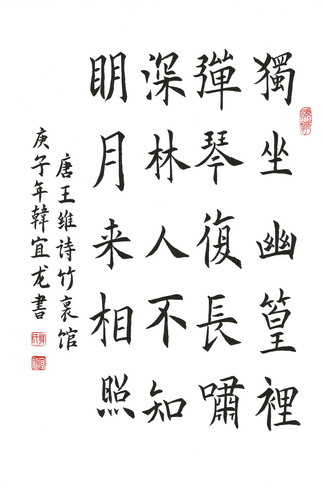 獨坐幽篁裡
彈琴復長嘯
深林人不知
明月来相照
唐王维诗竹裏馆
庚子年韓宜龙書